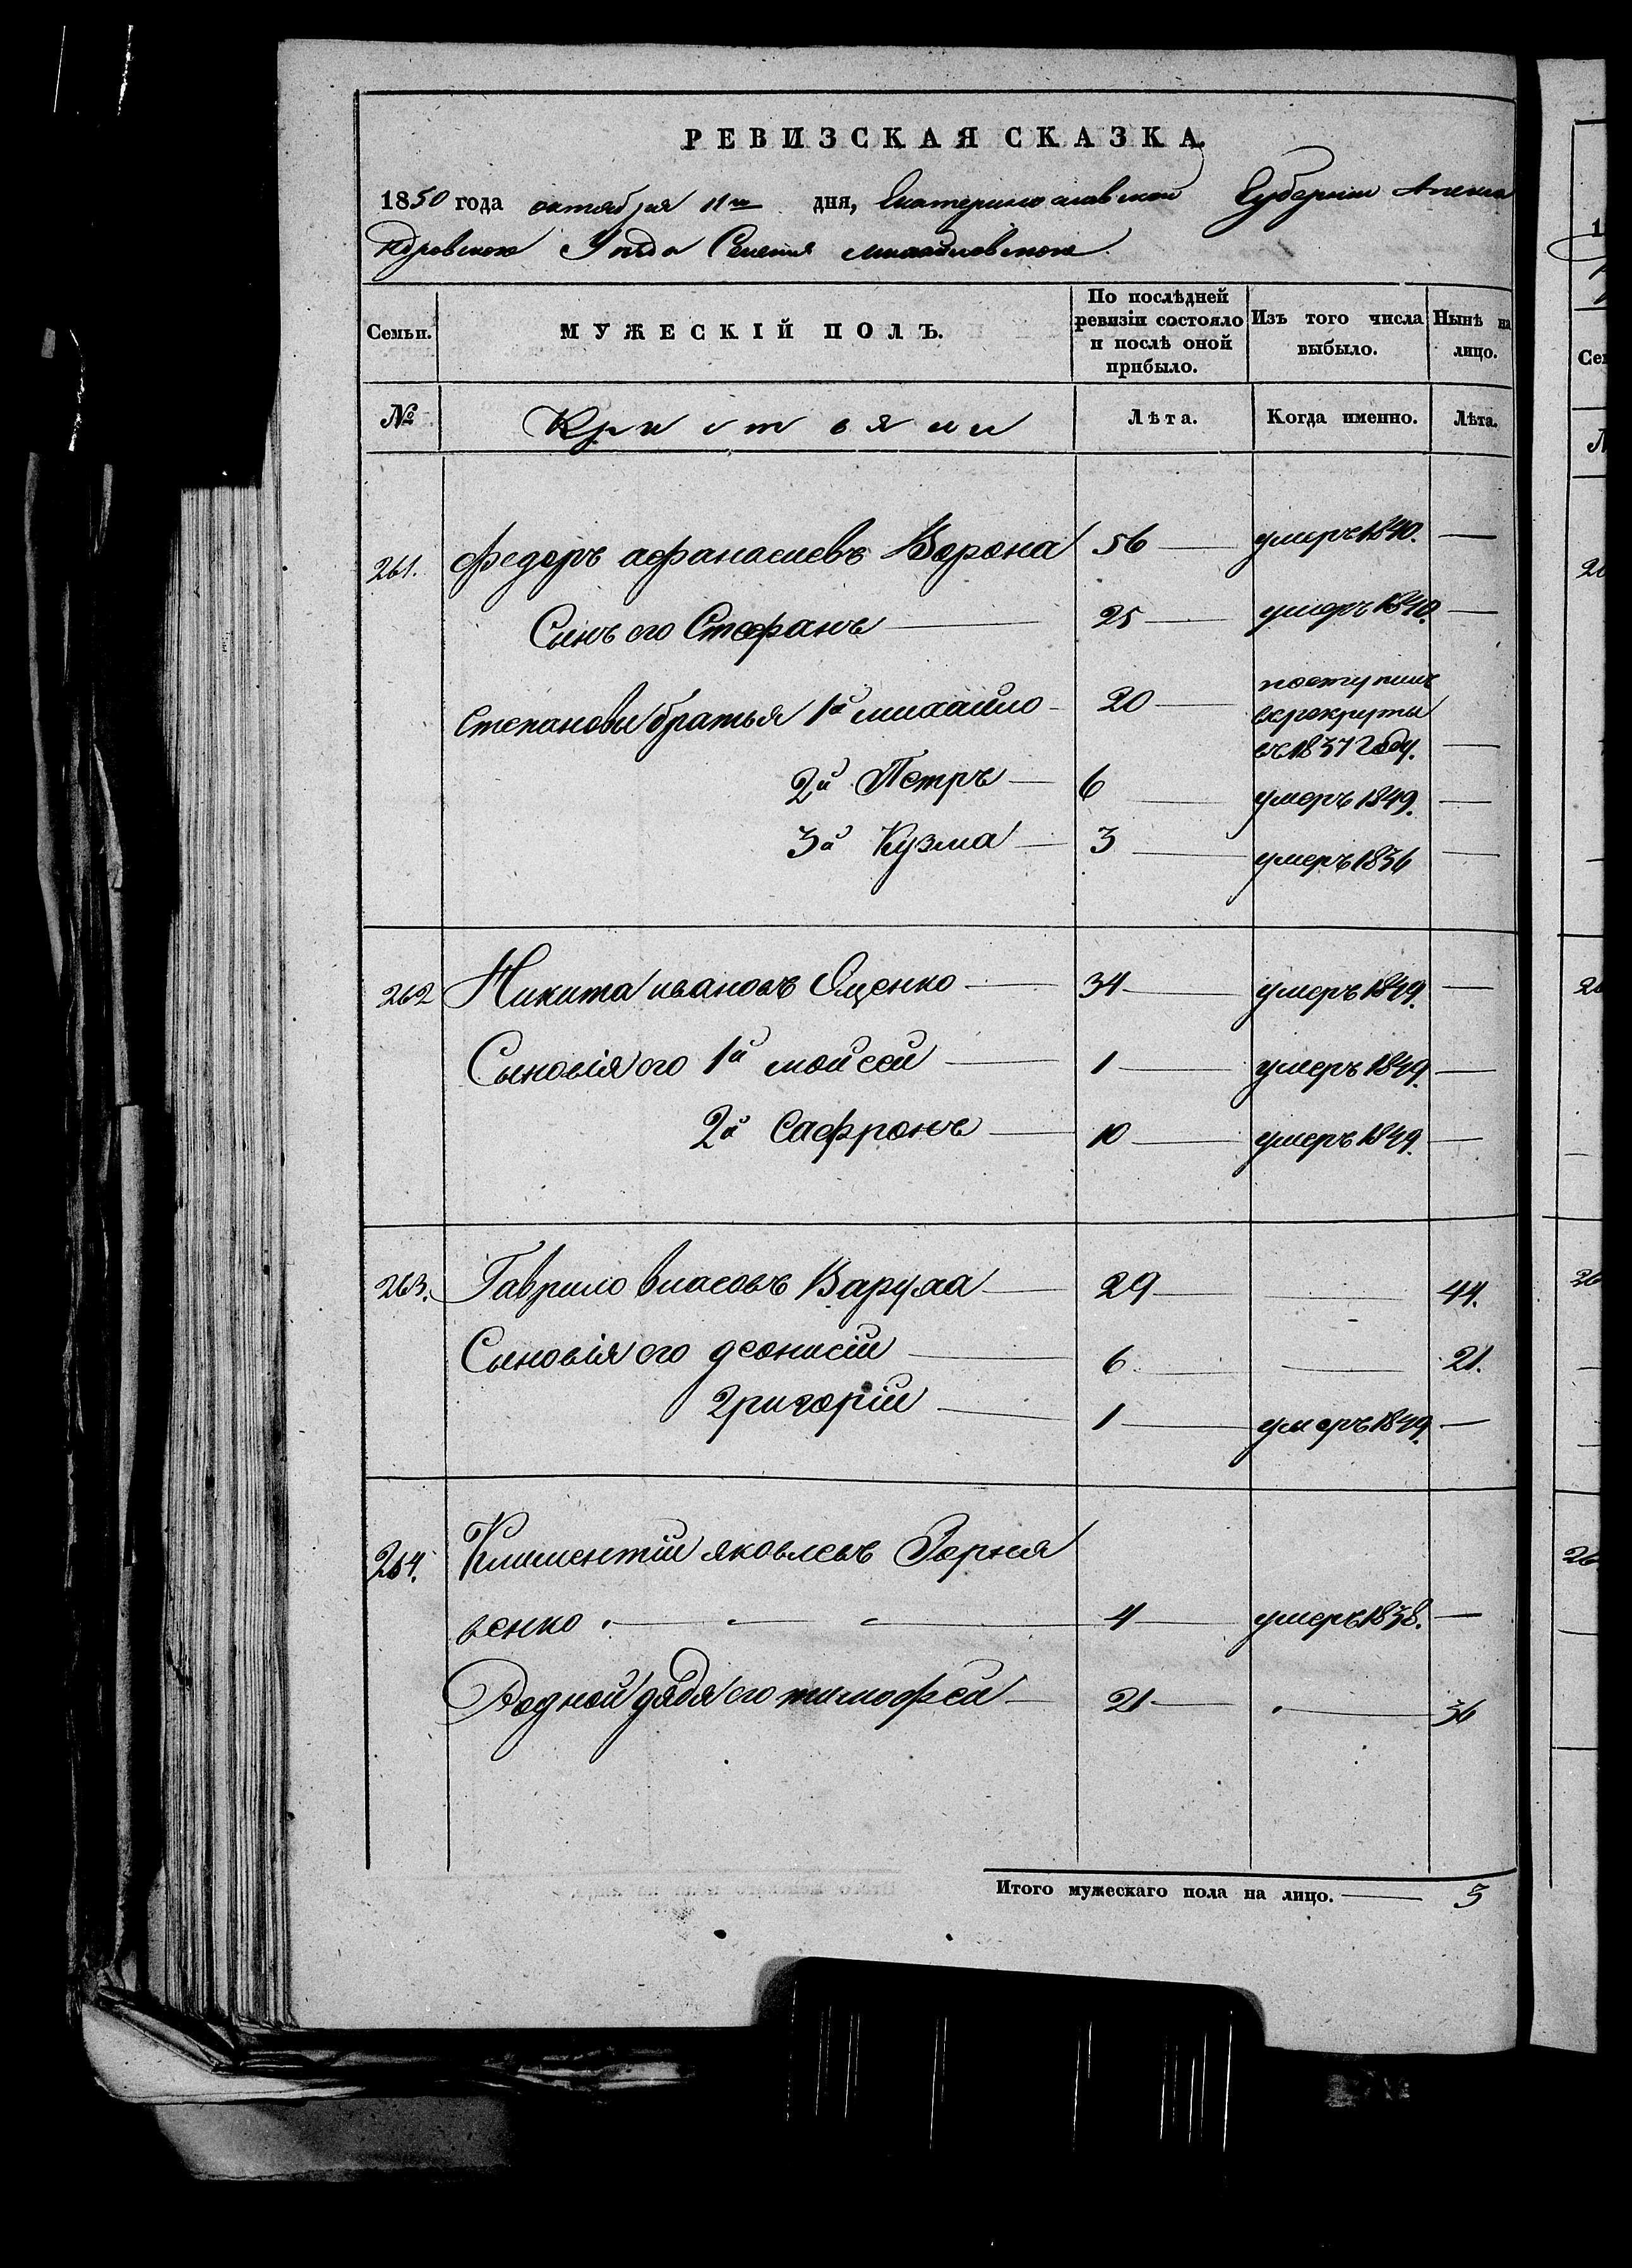 РЕВИЗСКАЯ СКАЗКА.
1850 года октября 11го дня, Екатеринославской Губернии Алекса
ндровскою Уезда Селения михайловскою
Семьи. МУЖЕСКІЙ ПОЛЪ. По послѣдней ревизіи состояло и послѣ оной прибыло. Изъ того числа выбыло. Нынѣ на лицо.
№ Лѣта. Когда именно. Лѣта.
261. Федоръ афанасиевъ Ворона 56 умеръ 1840. —
Сынъ его Стефанъ 25 умеръ 1840. —
Степановы братья 1й михайло 20 поступилъ
врекруты
въ 1837 Году. —
2й Петръ 6 умеръ 1849. —
3й Кузма 3 умеръ 1836 —
262 Никита ивановъ Яценко 34 умеръ 1849. —
Сыновія его 1й мойсей 1 умеръ 1849. —
2й Сафронъ 10 умеръ 1849. —
263. Гаврило власовъ Варуха 29 — 44.
Сыновія его деонисій 6 — 21.
Григорій 1 умеръ 1849. —
264. Климентій яковлевъ Горня
венко 4 умеръ 1838. —
Родной дядя его тимофей 21 — 36
Итого мужескаго пола на лицо. — 3